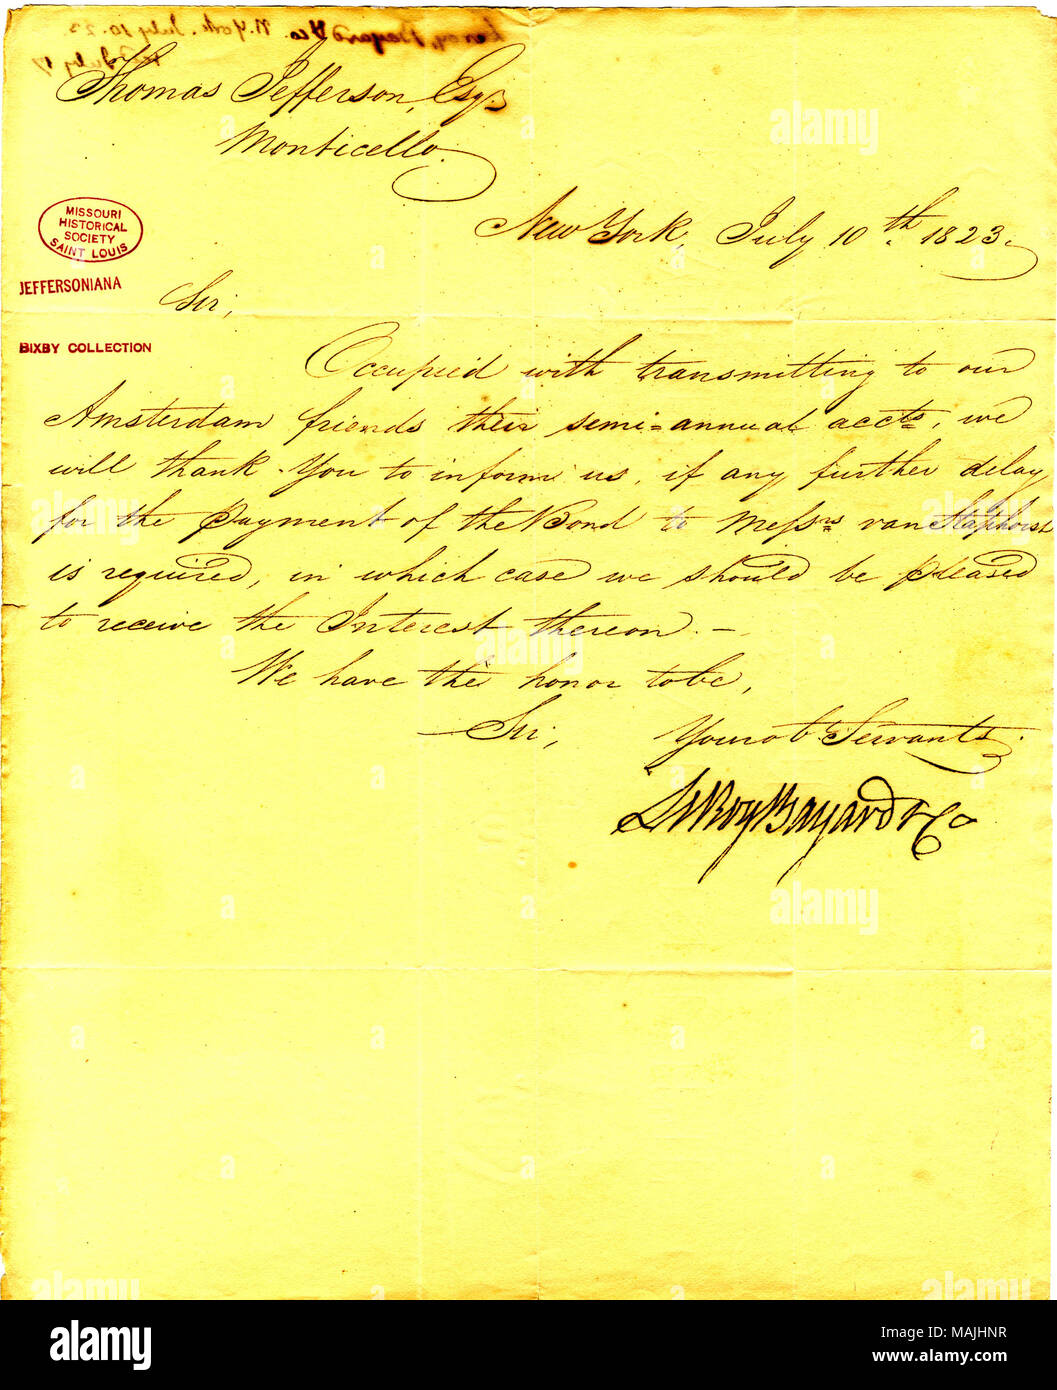 Leroy, Bayard & co. N. York. July 10. 23.
recd July 17
Thomas Jefferson, Esqr
Monticello.
New York, July 10th. 1823.
MISSOURI
HISTORICAL
SOCIETY
SAINT LOUIS
JEFFERSONIANA
Sir,
BIXBY COLLECTION
Occupied with transmitting to our
Amsterdam friends their semi-annual accts, we
will thank You to inform us, if any further delay
for the payment of the Bond to Messrs van Staphorst
is required, in which case we should be pleased
to receive the Interest thereon. —
We have the honor to be,
Sir,
Your ob. Servants.
LeRoy Bayard & Co
alamy
alamy
Image ID: MAJHNR
www.alamy.com